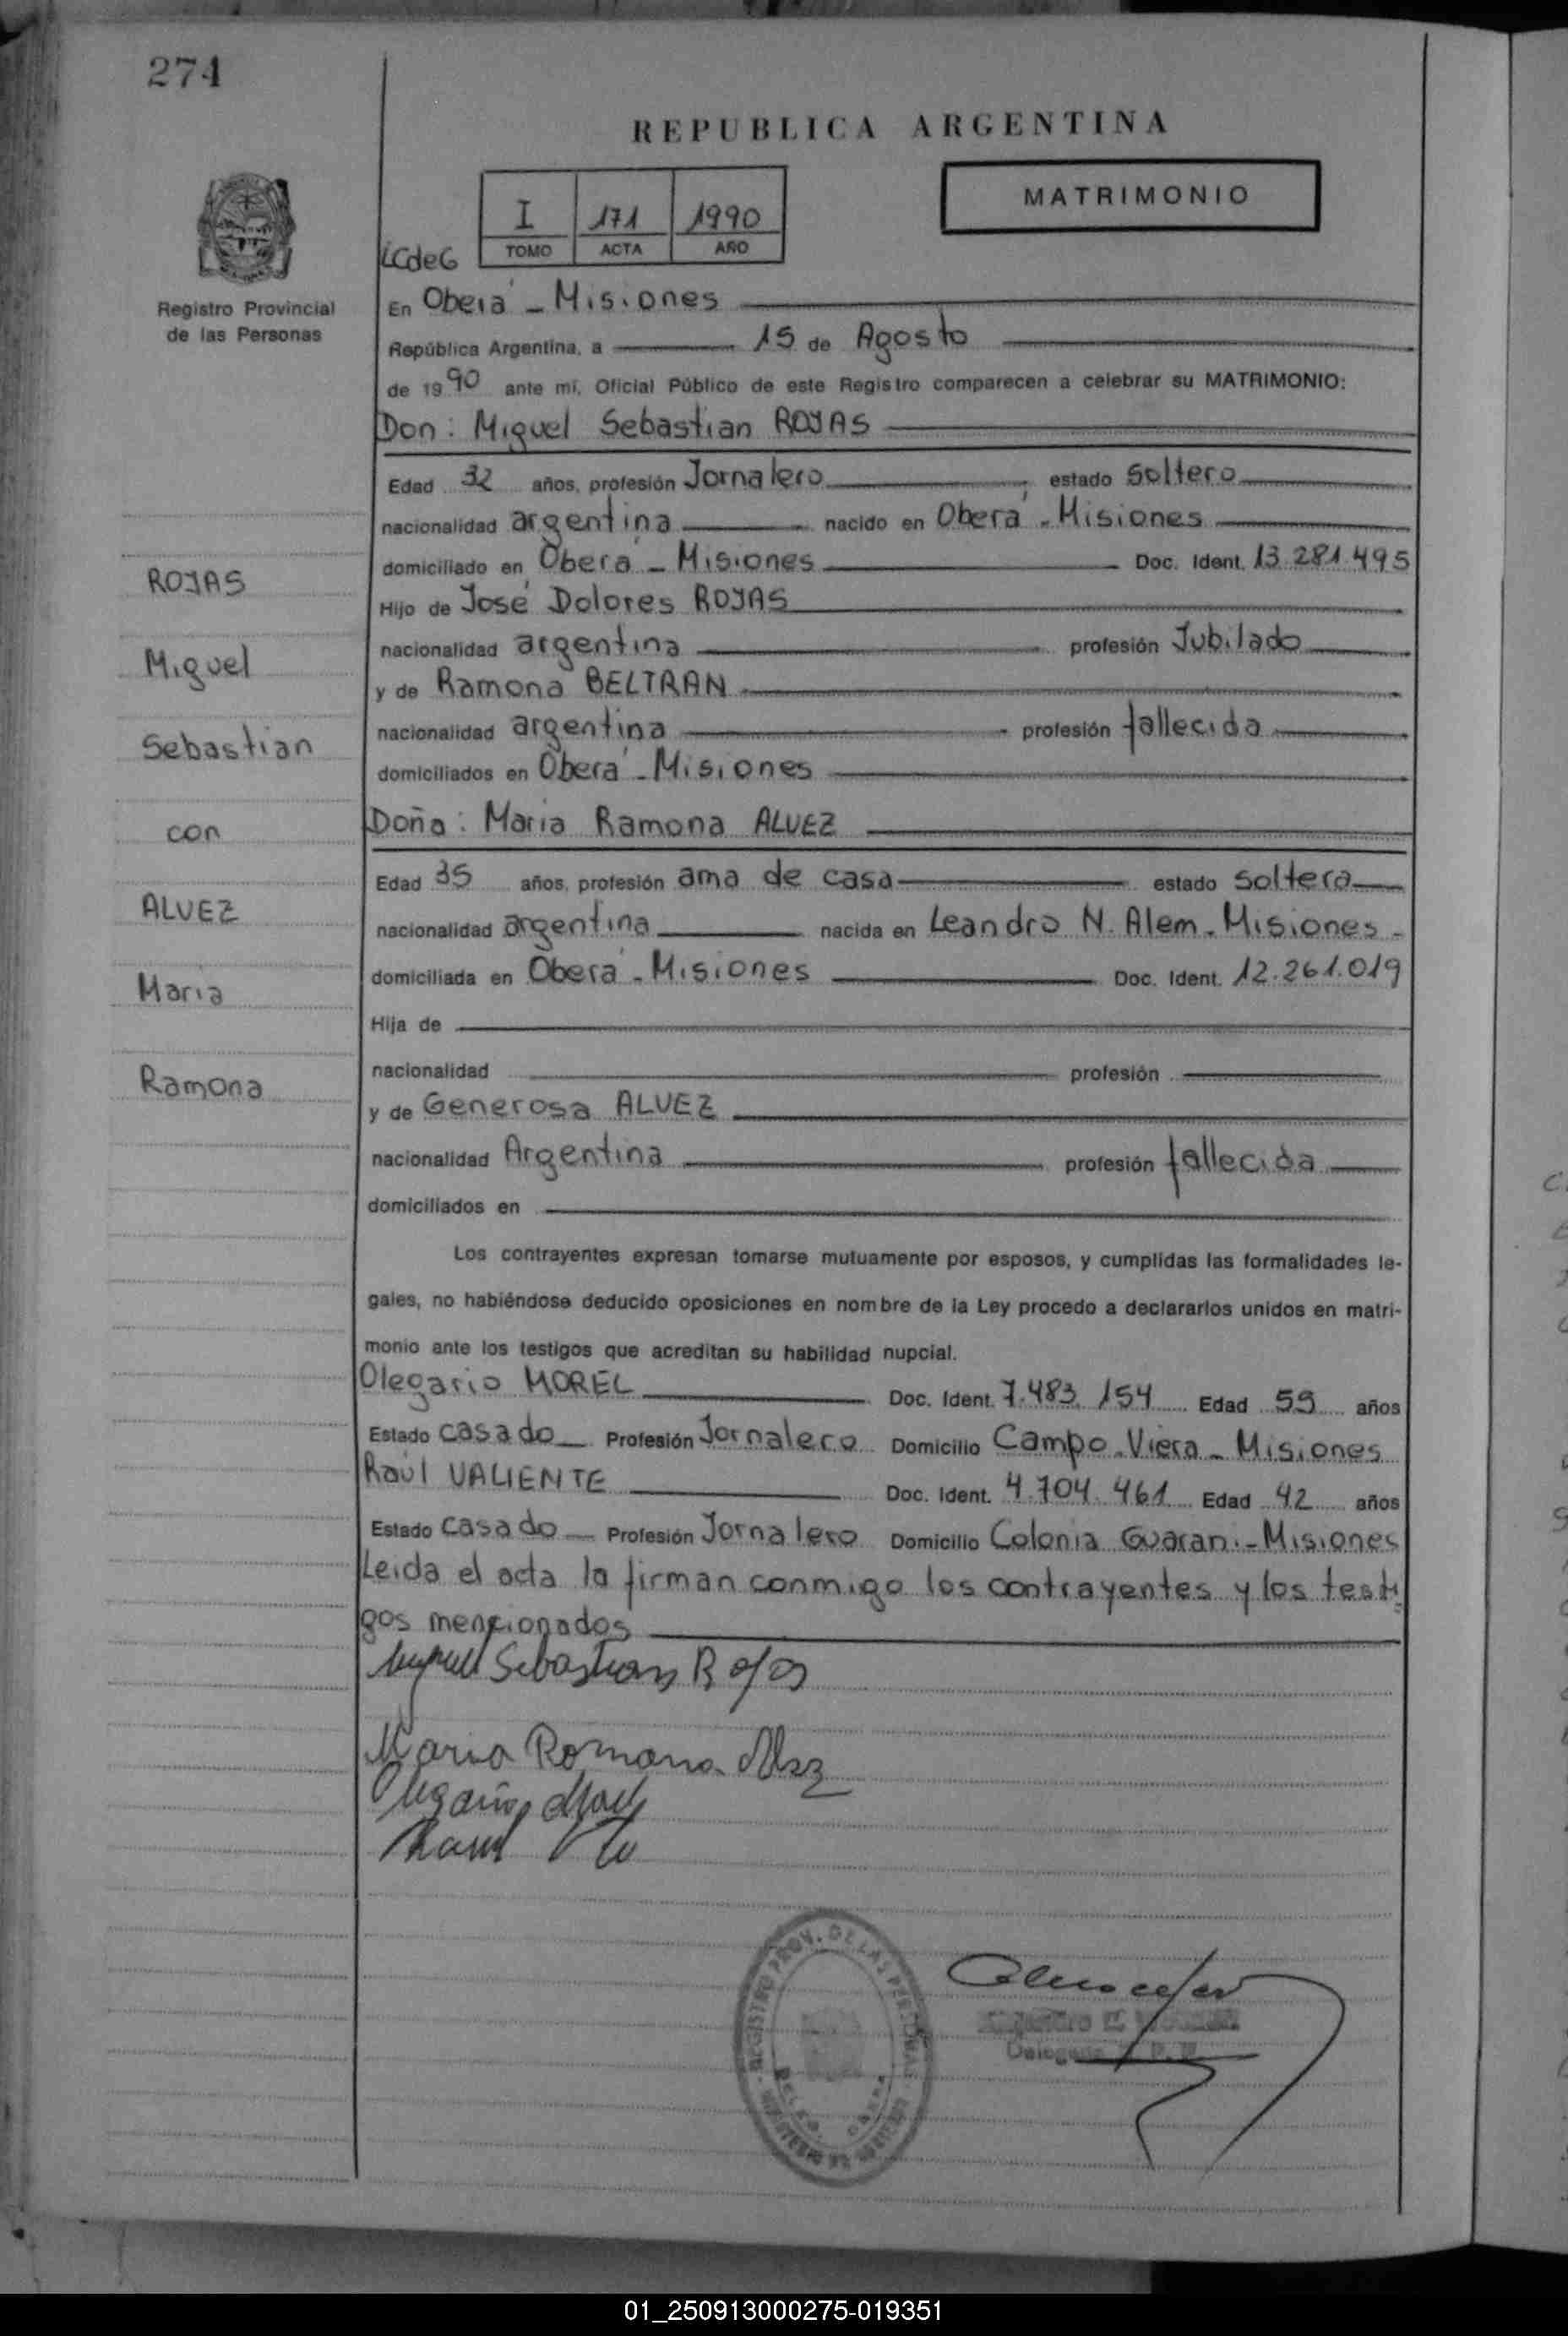 274
REPUBLICA ARGENTINA
MATRIMONIO
I 171 1990
TOMO ACTA AÑO
LCdeG
Registro Provincial
de las Personas
En Oberá - Misiones
República Argentina, a 15 de Agosto
de 1990 ante mí, Oficial Público de este Registro comparecen a celebrar su MATRIMONIO:
Don: Miguel Sebastian ROJAS
Edad 32 años, profesión Jornalero estado soltero
nacionalidad argentina nacido en Oberá - Misiones
domiciliado en Oberá - Misiones Doc. Ident. 13.281.495
Hijo de José Dolores ROJAS
nacionalidad argentina profesión Jubilado
y de Ramona BELTRAN
nacionalidad argentina profesión fallecida
domiciliados en Oberá - Misiones
Doña: Maria Ramona ALVEZ
Edad 35 años, profesión ama de casa estado soltera
nacionalidad argentina nacida en Leandro N. Alem - Misiones -
domiciliada en Oberá - Misiones Doc. Ident. 12.261.019
Hija de
nacionalidad profesión
y de Generosa ALVEZ
nacionalidad Argentina profesión fallecida
domiciliados en
Los contrayentes expresan tomarse mutuamente por esposos, y cumplidas las formalidades le-
gales, no habiéndose deducido oposiciones en nombre de la Ley procedo a declararlos unidos en matri-
monio ante los testigos que acreditan su habilidad nupcial.
Olegario MOREL Doc. Ident. 7.483.154 Edad 59 años
Estado casado Profesión Jornalero Domicilio Campo Viera - Misiones
Raúl VALIENTE Doc. Ident. 4.704.461 Edad 42 años
Estado casado Profesión Jornalero Domicilio Colonia Guarani - Misiones
Leida el acta la firman conmigo los contrayentes y los testi=
gos mencionados
Miguel Sebastian Rojas
Maria Ramona Alvez
ROJAS
Miguel
Sebastian
con
ALVEZ
Maria
Ramona
REGISTRO PROV. DE LAS PERSONAS
01_250913000275-019351